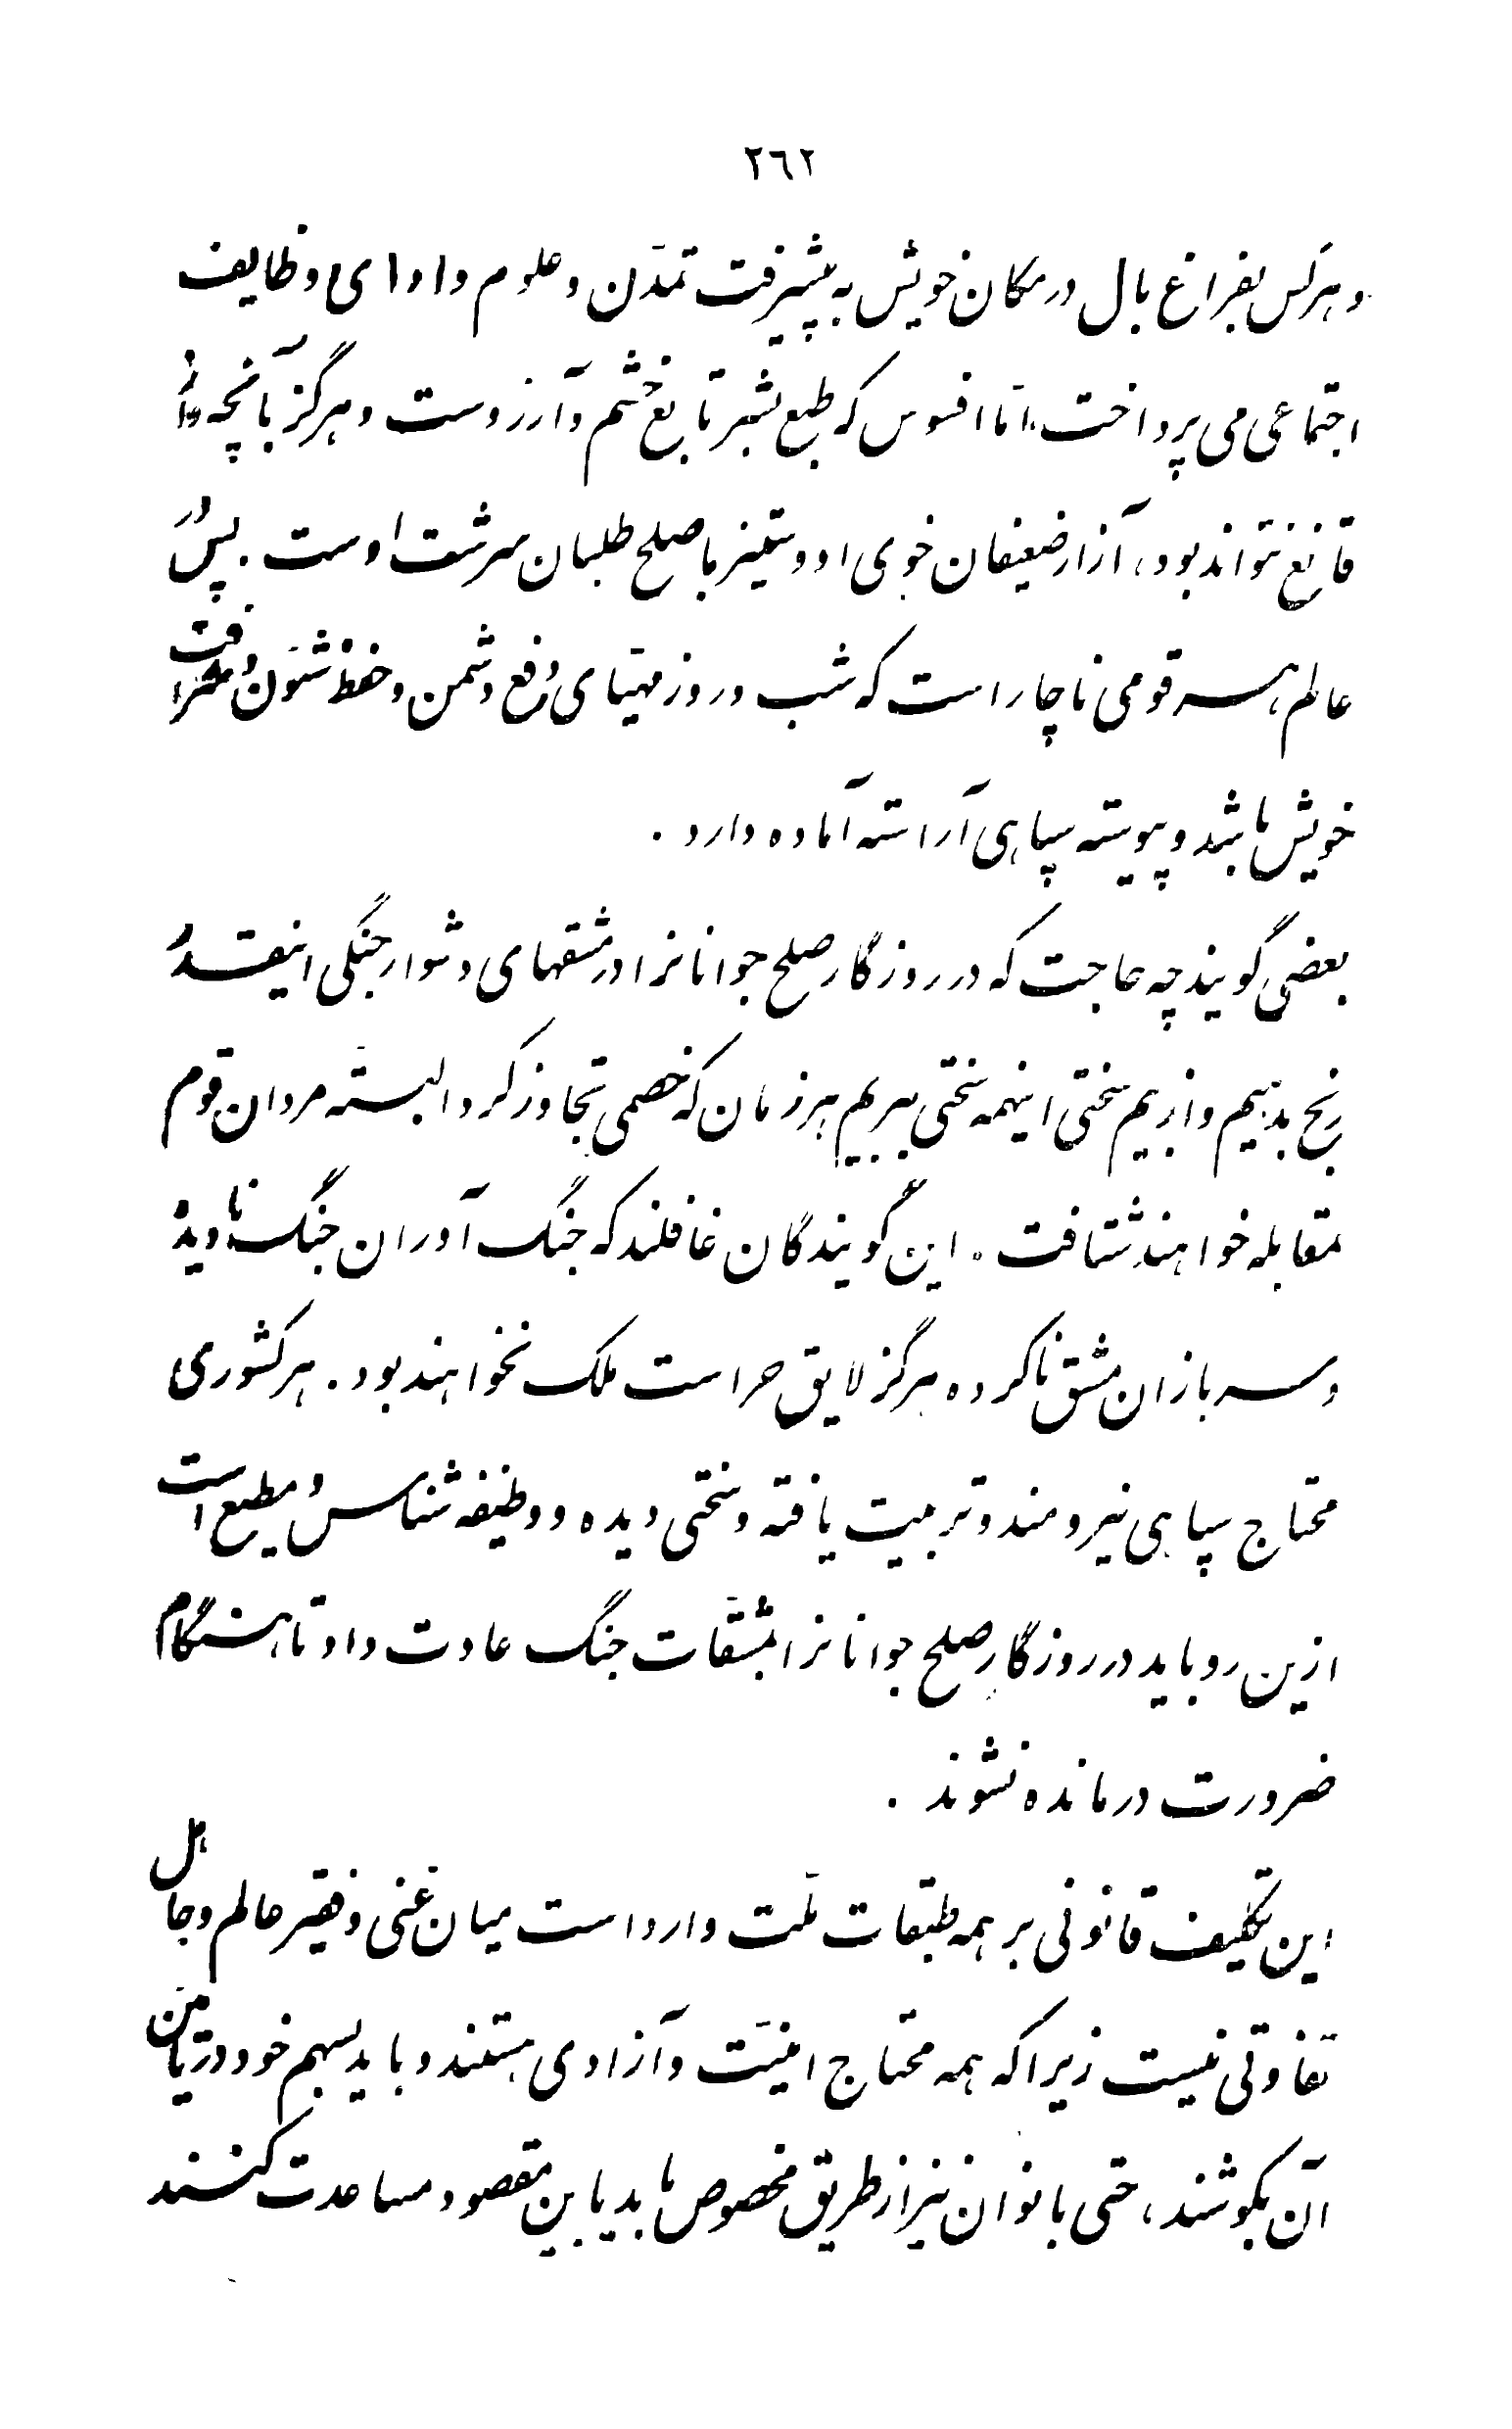 ٢٦٢
و هر کس بفراغ بال در مکان خویش به پیشرفت تمدّن و علوم و ادای وظایف
اجتماعی می پرداخت، امّا افسوس که طبع بشر تابع خشم و آرزوست و هرگز بآنچه دارد
قانع نتواند بود، آزار ضعیفان خوی او و ستیز با صلح طلبان سرشت اوست. پس در
عالم، هر قومی ناچار است که شب و روز مهیّای دفع دشمن و حفظ شئون و شرافت
خویش باشد و پیوسته سپاهی آراسته آماده دارد.
بعضی گویند چه حاجت که در روزگار صلح جوانانرا در مشقهای دشوار جنگی اینقدر
رنج بدهیم و از بیم سختی اینهمه سختی ببریم هر زمان که خصمی تجاوز کرد البتّه مردان قوم
بمقابله خواهند شتافت. این گویندگان غافلند که جنگ آوران جنگ نادیده
و سربازان مشق ناکرده هرگز لایق حراست ملک نخواهند بود. هر کشوری
محتاج سپاهی نیرومند و تربیت یافته و سختی دیده و وظیفه شناس و مطیع است
ازین رو باید در روزگار صلح جوانانرا بمشقّات جنگ عادت داد تا هنگام
ضرورت درمانده نشوند.
این تکلیف قانونی بر همه طبقات ملّت وارد است میان غنی و فقیر عالم و جاهل
تفاوتی نیست زیرا که همه محتاج امنیّت و آزادی هستند و باید بسهم خود در تأمین
آن بکوشند، حتی بانوان نیز از طریق مخصوص باید باین مقصود مساعدت کنند